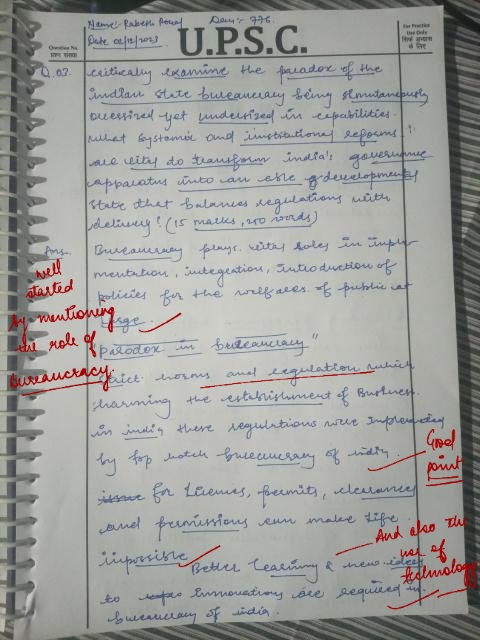 Name:- Rakesh
Date 02/12/2023
Question No.
प्रश्न संख्या
U.P.S.C.
For Practice
Use Only
सिर्फ अभ्यास
के लिए
Q.03.
critically examine the paradox of the
indian state bureaucracy being simultaneously
oversized yet undersized in capabilities.
what systemic and institutional reforms
are vital to transform india's governance
apparatus into an able developmental
state that balances regulations with
delivery? (15 marks, 250 words)
Ans.
Bureaucracy plays vital roles in imple-
mentation, integration, introduction of
policies for the welfare of public at
large.
well
started
by mentioning
the role of
bureaucracy.
"paradox in bureaucracy"
strict norms and regulation which
harming the establishment of Business
in india these regulations were
by top notch bureaucracy of india
Good
point
for Licences, permits, clearances
and permissions can make life
impossible
And also the
use of
technology
Better learning & new
to Innovations are required in
bureaucracy of india.